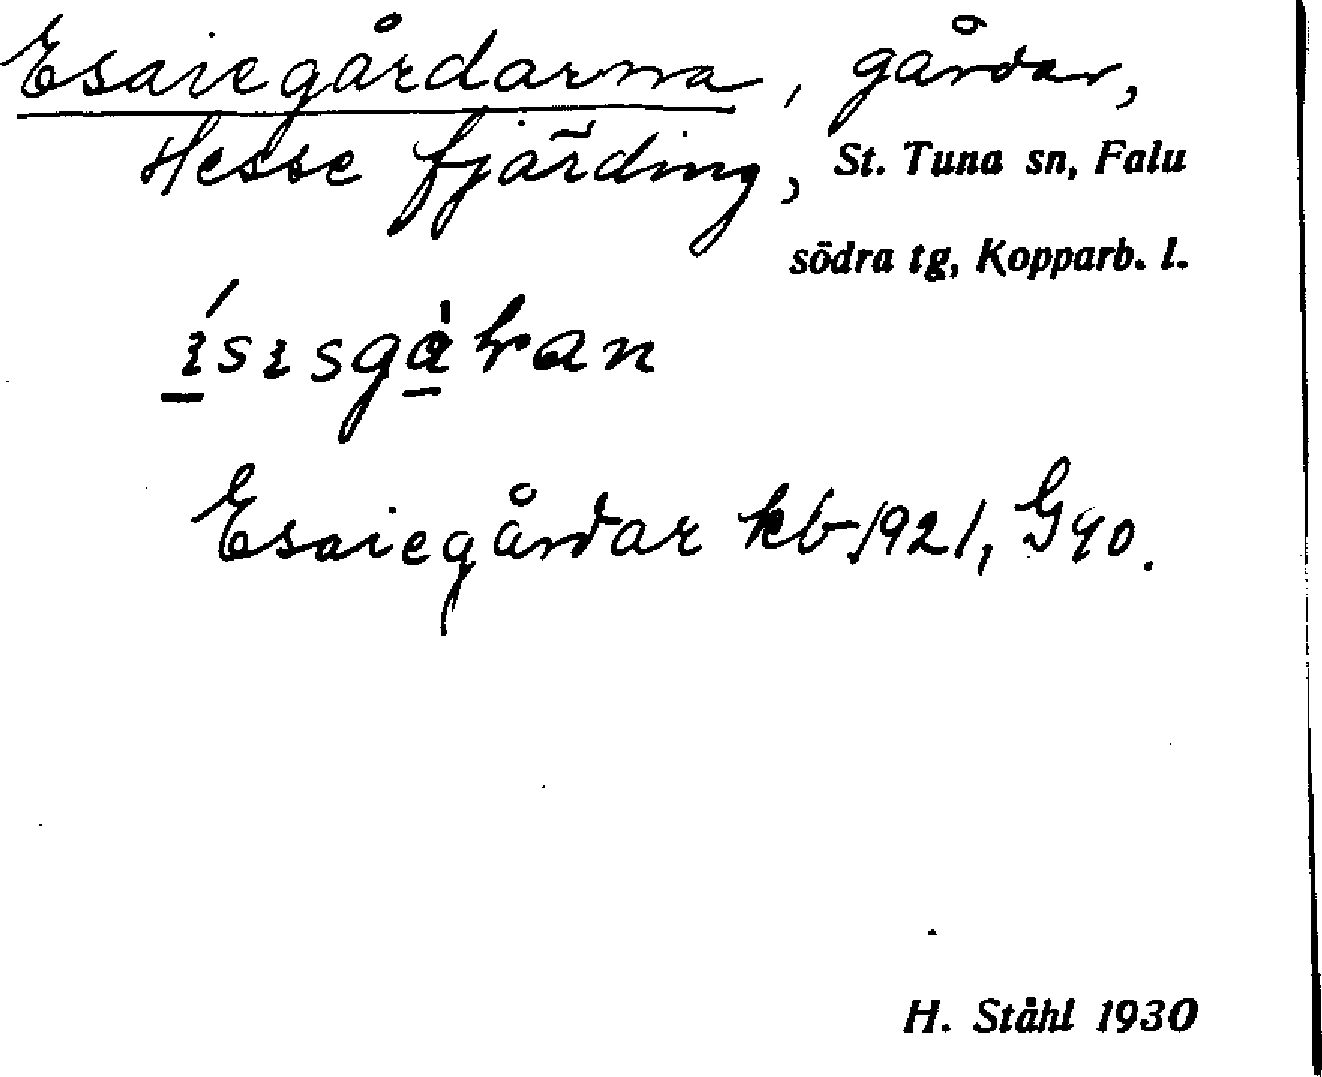 Esaiegårdarna, gårdar,
Hesse fjärding, St. Tuna sn, Falu
södra tg, Kopparb. l.
Esaiegårdar kb 1921, G40.
H. Ståhl 1930